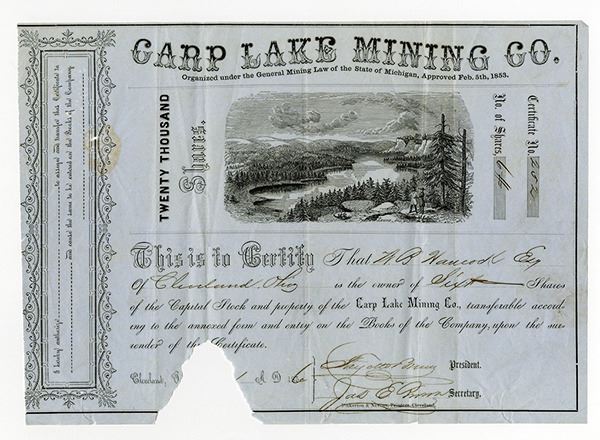 CARP LAKE MINING CO.
Organized under the General Mining Law of the State of Michigan, Approved Feb. 5th, 1853.
TWENTY THOUSAND
Shares.
Certificate No. 202
No. of Shares,
This is to Certify That W B Hancock Esq
Of Cleveland Ohio is the owner of Shares
of the Capital Stock and property of the Carp Lake Mining Co., transferable accord-
ing to the annexed form and entry on the Books of the Company, upon the sur-
render of the Certificate.
Cleveland, A.D.
President.
Jas E Secretary.
Cleveland.
I hereby authorize
to arrange and transfer this Certificate to
and cause the same to be entered on the Books of the Company.